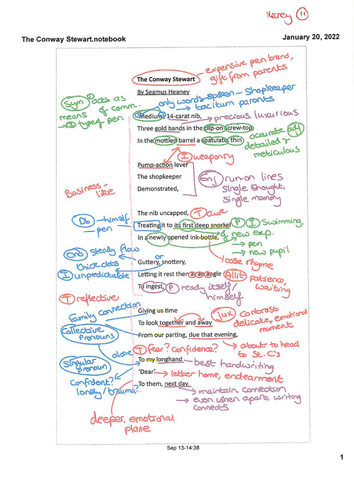 Heaney 11
The Conway Stewart.notebook
January 20, 2022
expensive pen brand,
gift from parents
The Conway Stewart
By Seamus Heaney
Sym acts as
means of comm.
type of pen
only words spoken - Shopkeeper
taciturn parents
"Medium", 14-carat nib,
precious, luxurious
Three gold bands in the clip-on screw-top,
In the mottled barrel a spatulate, thin
accurate adj
detailed &
meticulous
I weaponry
Pump-action lever
The shopkeeper
Demonstrated,
Enj run-on lines
Single thought,
Single memory
Business-
like
The nib uncapped,
T awe
Treating it to its first deep snorkel
P I Swimming.
In a newly opened ink-bottle,
new exp.
pen
new pupil
himself
pen
loose rhyme
Ono steady flow
or
thick clots
Guttery, snottery,
I unpredictable
Letting it rest then at an angle
Allit patience,
waiting
To ingest,
P ready itself/
himself
T reflective
Giving us time
family connection
To look together and away
Jux contrasts
delicate, emotional
moment
Collective
Pronouns
From our parting, due that evening,
about to head
to St. C's
alone
T fear? confidence?
Singular
pronoun
To my longhand
best handwriting
'Dear'
letter
home, endearment
Confident?
lonely/trauma?
To them, next day.
maintain connection
even when apart, writing
connects
deeper, emotional
plane
Sep 13-14:38
1